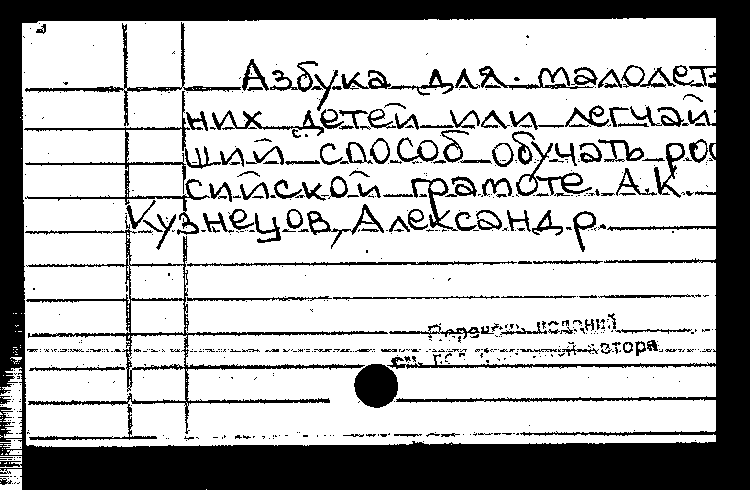 Азбука для малолет-
них детей или легчай-
ший способ обучать рос
сийской грамоте. А.К.
Кузнецов, Александр.
Перечень изданий
см. под автора